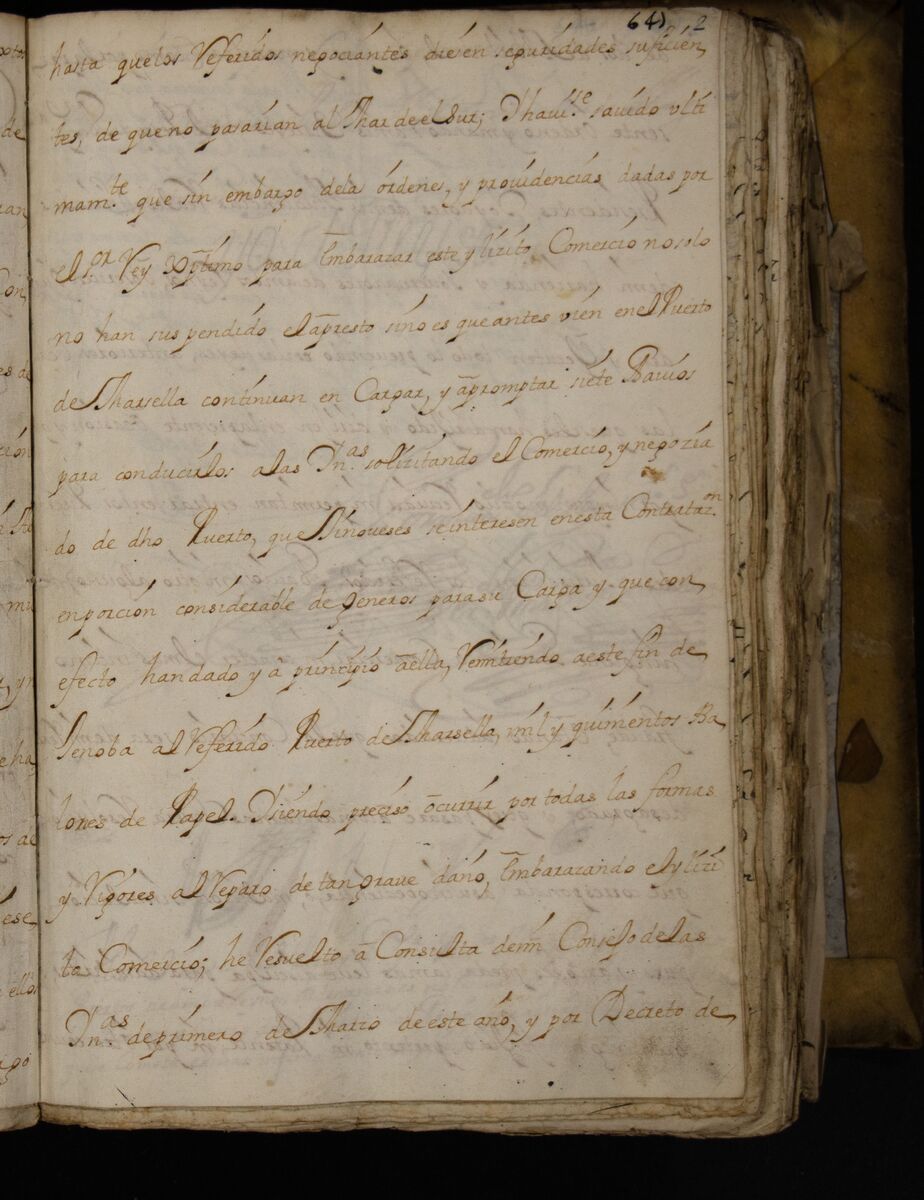 64) 2
hasta que los Referidos negociantes diesen seguridades suficien
tes, de que no pasarian al Mar de el Sur; Y havi.se savido ulti
mam.te que sin embargo dela órdenes, y providencias dadas por
el Rey Xptmo para Embarazar este ylizito Comercio no solo
no han suspendido el apresto sino es que antes vien en el Puerto
de Marsella continuan en Cargar, y apromptar siete Navios
para conducirlos alas Yn.as solizitando el Comercio, y negozia
do de dho Puerto, que Ginoveses se interesen en esta Contratazi.on
en porcion considerable de generos para su Carga y que con
efecto han dado ya principio a ella, Remitiendo a este fin de
Genoba al Referido Puerto de Marsella, mil y quinientos Ba
lones de Papel. Y siendo preciso ocurrir por todas las formas
y Rigores al Reparo de tan grave daño, Embarazando el ylizi
to Comercio; he Resuelto a Consulta de mi Consejo de las
Yn.as de primero de Marzo de este año, y por Decreto de